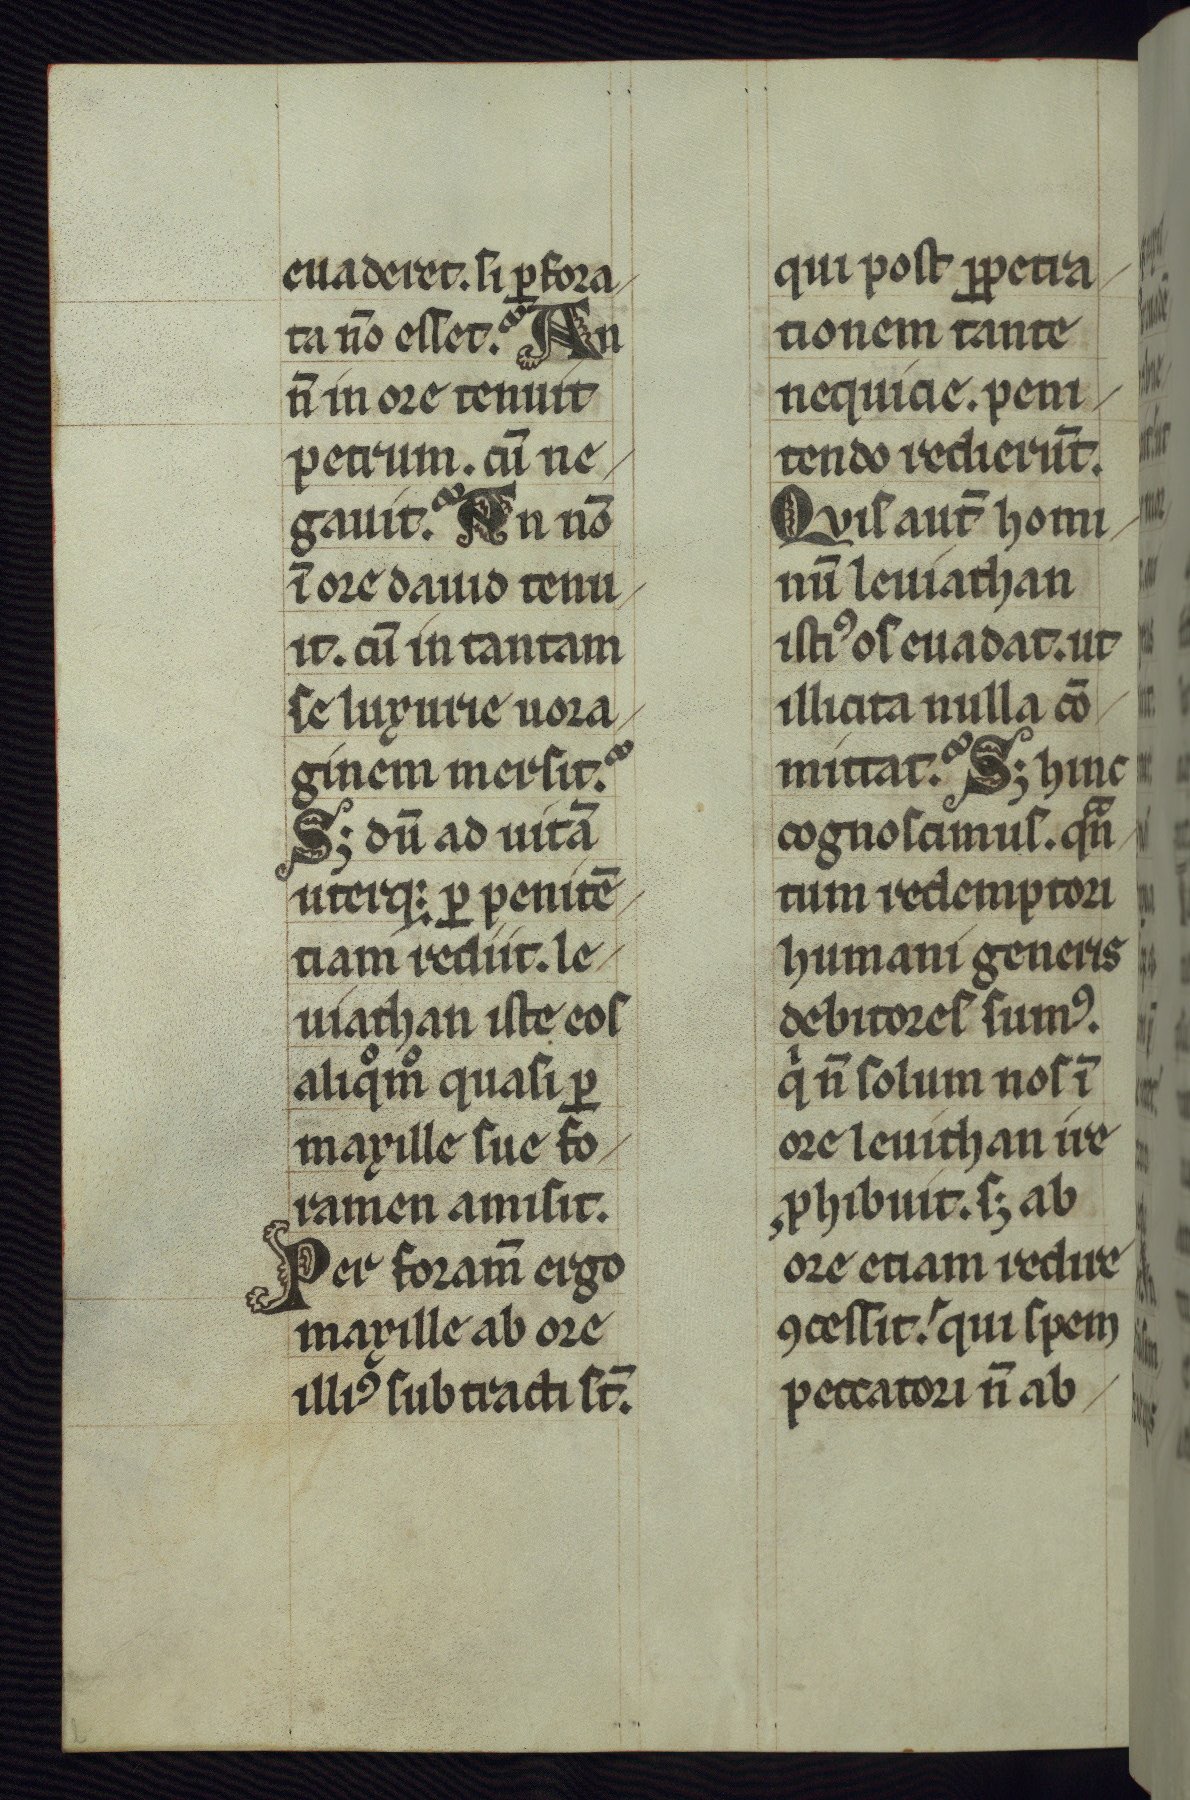 euaderet. si ꝑfora
ta n̄o esset. An
n̄ in ore tenuit
petrum. cū ne
gauit. An nō
ī ore dauid tenu
it. cū in tantam
se luxurie uora
ginem mersit.
S; dū ad uitā
uterq; ꝑ penitē
tiam rediit. le
uiathan iste eos
aliqͦmͦ quasi ꝑ
maxille sue fo
ramen amisit.
Per foram̄ ergo
maxille ab ore
illiꝰ subtracti st̄.
qui post ꝑpetra
tionem tante
nequicie. peni
tendo redierūt.
Quis aut̄ homi
nū leuiathan
istiꝰ os euadat. ut
illicita nulla cō
mittat. S; hinc
cognoscimus. qᷓn
tum redemptori
humani generis
debitores sumꝰ.
qͥ n̄ solum nos ī
ore leuithan ire
ꝓhibuit. s; ab
ore etiam redire
ꝯcessit. qui spem
peccatori n̄ ab